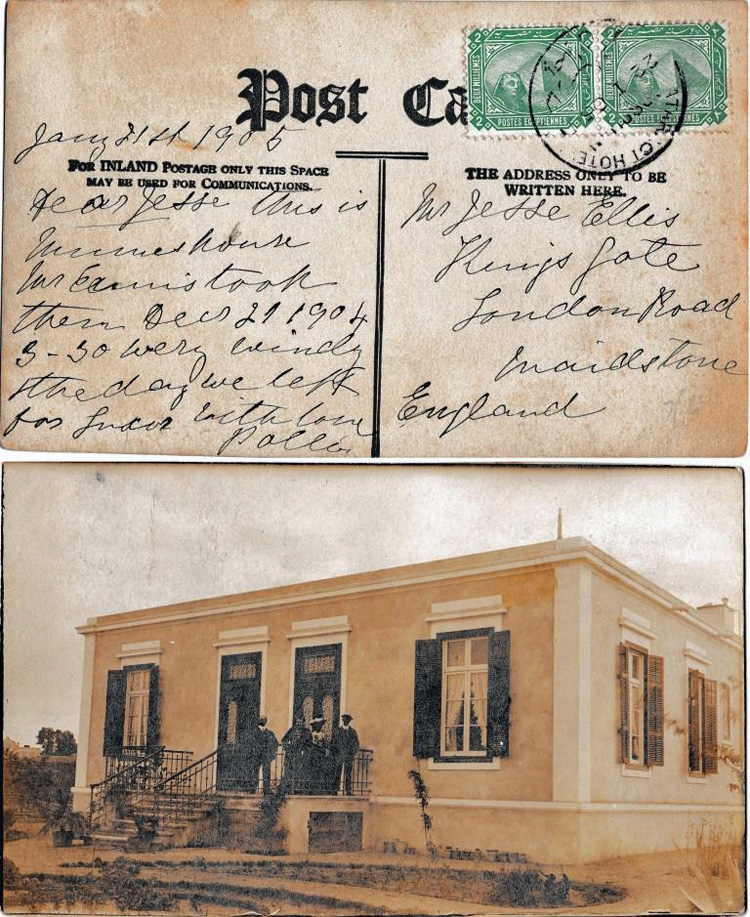 Post Ca
2 2
DEUX MILLIEMES
POSTES EGYPTIENNES
2 2
DEUX MILLIEMES
POSTES EGYPTIENNES
CT HOTE
Jany 21st 1905
FOR INLAND POSTAGE ONLY THIS SPACE
MAY BE USED FOR COMMUNICATIONS.
THE ADDRESS ONLY TO BE
WRITTEN HERE.
Dear Jesse this is
house
Mr took
them Decr 29 1904
3-30 very windy
the day we left
for Luxor with love
Pollie
Mr Jesse Ellis
Kings Gate
London Road
Maidstone
England